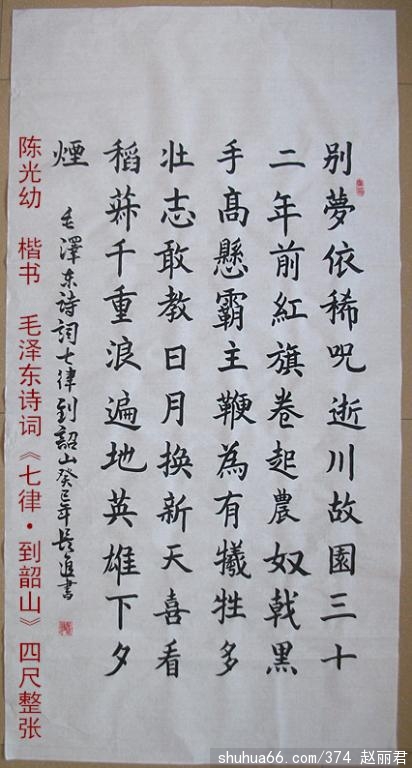 别夢依稀呪逝川故園三十
二年前紅旗卷起農奴戟黑
手髙懸霸主鞭為有犧牲多
壮志敢教日月换新天喜看
稻菽千重浪遍地英雄下夕
煙
毛澤东诗词七律到韶山癸巳年書
陈光幼 楷书 毛泽东诗词《七律·到韶山》四尺整张
shuhua66.com/374 赵丽君